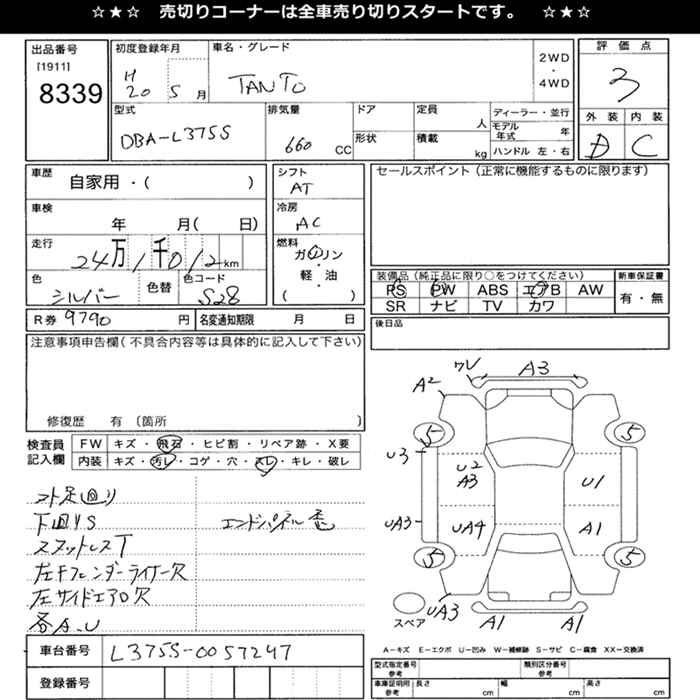 ☆★☆ 売切りコーナーは全車売り切りスタートです。 ☆★☆
出品番号
[1911]
8339
初度登録年月
H 20 5月
車名・グレード
TANTO
2WD
・
4WD
評価点
3
型式
DBA-L375S
排気量
660 CC
ドア
形状
定員
人
積載
kg
ディーラー・並行
モデル年式 年
ハンドル 左・右
外装 内装
D C
車歴
自家用・( )
シフト
AT
セールスポイント(正常に機能するものに限ります)
車検
年 月( 日)
冷房
AC
走行
24万1千012km
燃料
ガソリン
・
軽・油
( )
色
シルバー
色替
色コード
S28
装備品(純正品に限り○をつけてください)
PS PW ABS エアB AW
SR ナビ TV カワ
新車保証書
有・無
R券 9790 円
名変通知期限 月 日
後日品
注意事項申告欄(不具合内容等は具体的に記入して下さい)
修復歴 有 〔箇所 〕
検査員記入欄
FW キズ・飛石・ヒビ割・リペア跡・X要
内装 キズ・汚レ・コゲ・穴・スレ・キレ・破レ
コト足回り
下回りS
エンドパネル歪
左Fフェンダーライナー欠
左サイドエアロ欠
各A.U
車台番号
L375S-0057247
登録番号
ワレ
A3
A2
5
5
U3
U2
A3
U1
UA3
UA4
A1
5
5
スペア
UA3
A1
A1
A-キズ E-エクボ U-凹み W-補修跡 S-サビ C-腐食 XX-交換済
型式指定番号
参考
類別区分番号
参考
車庫証明用
参考
長さ cm
幅 cm
高さ cm